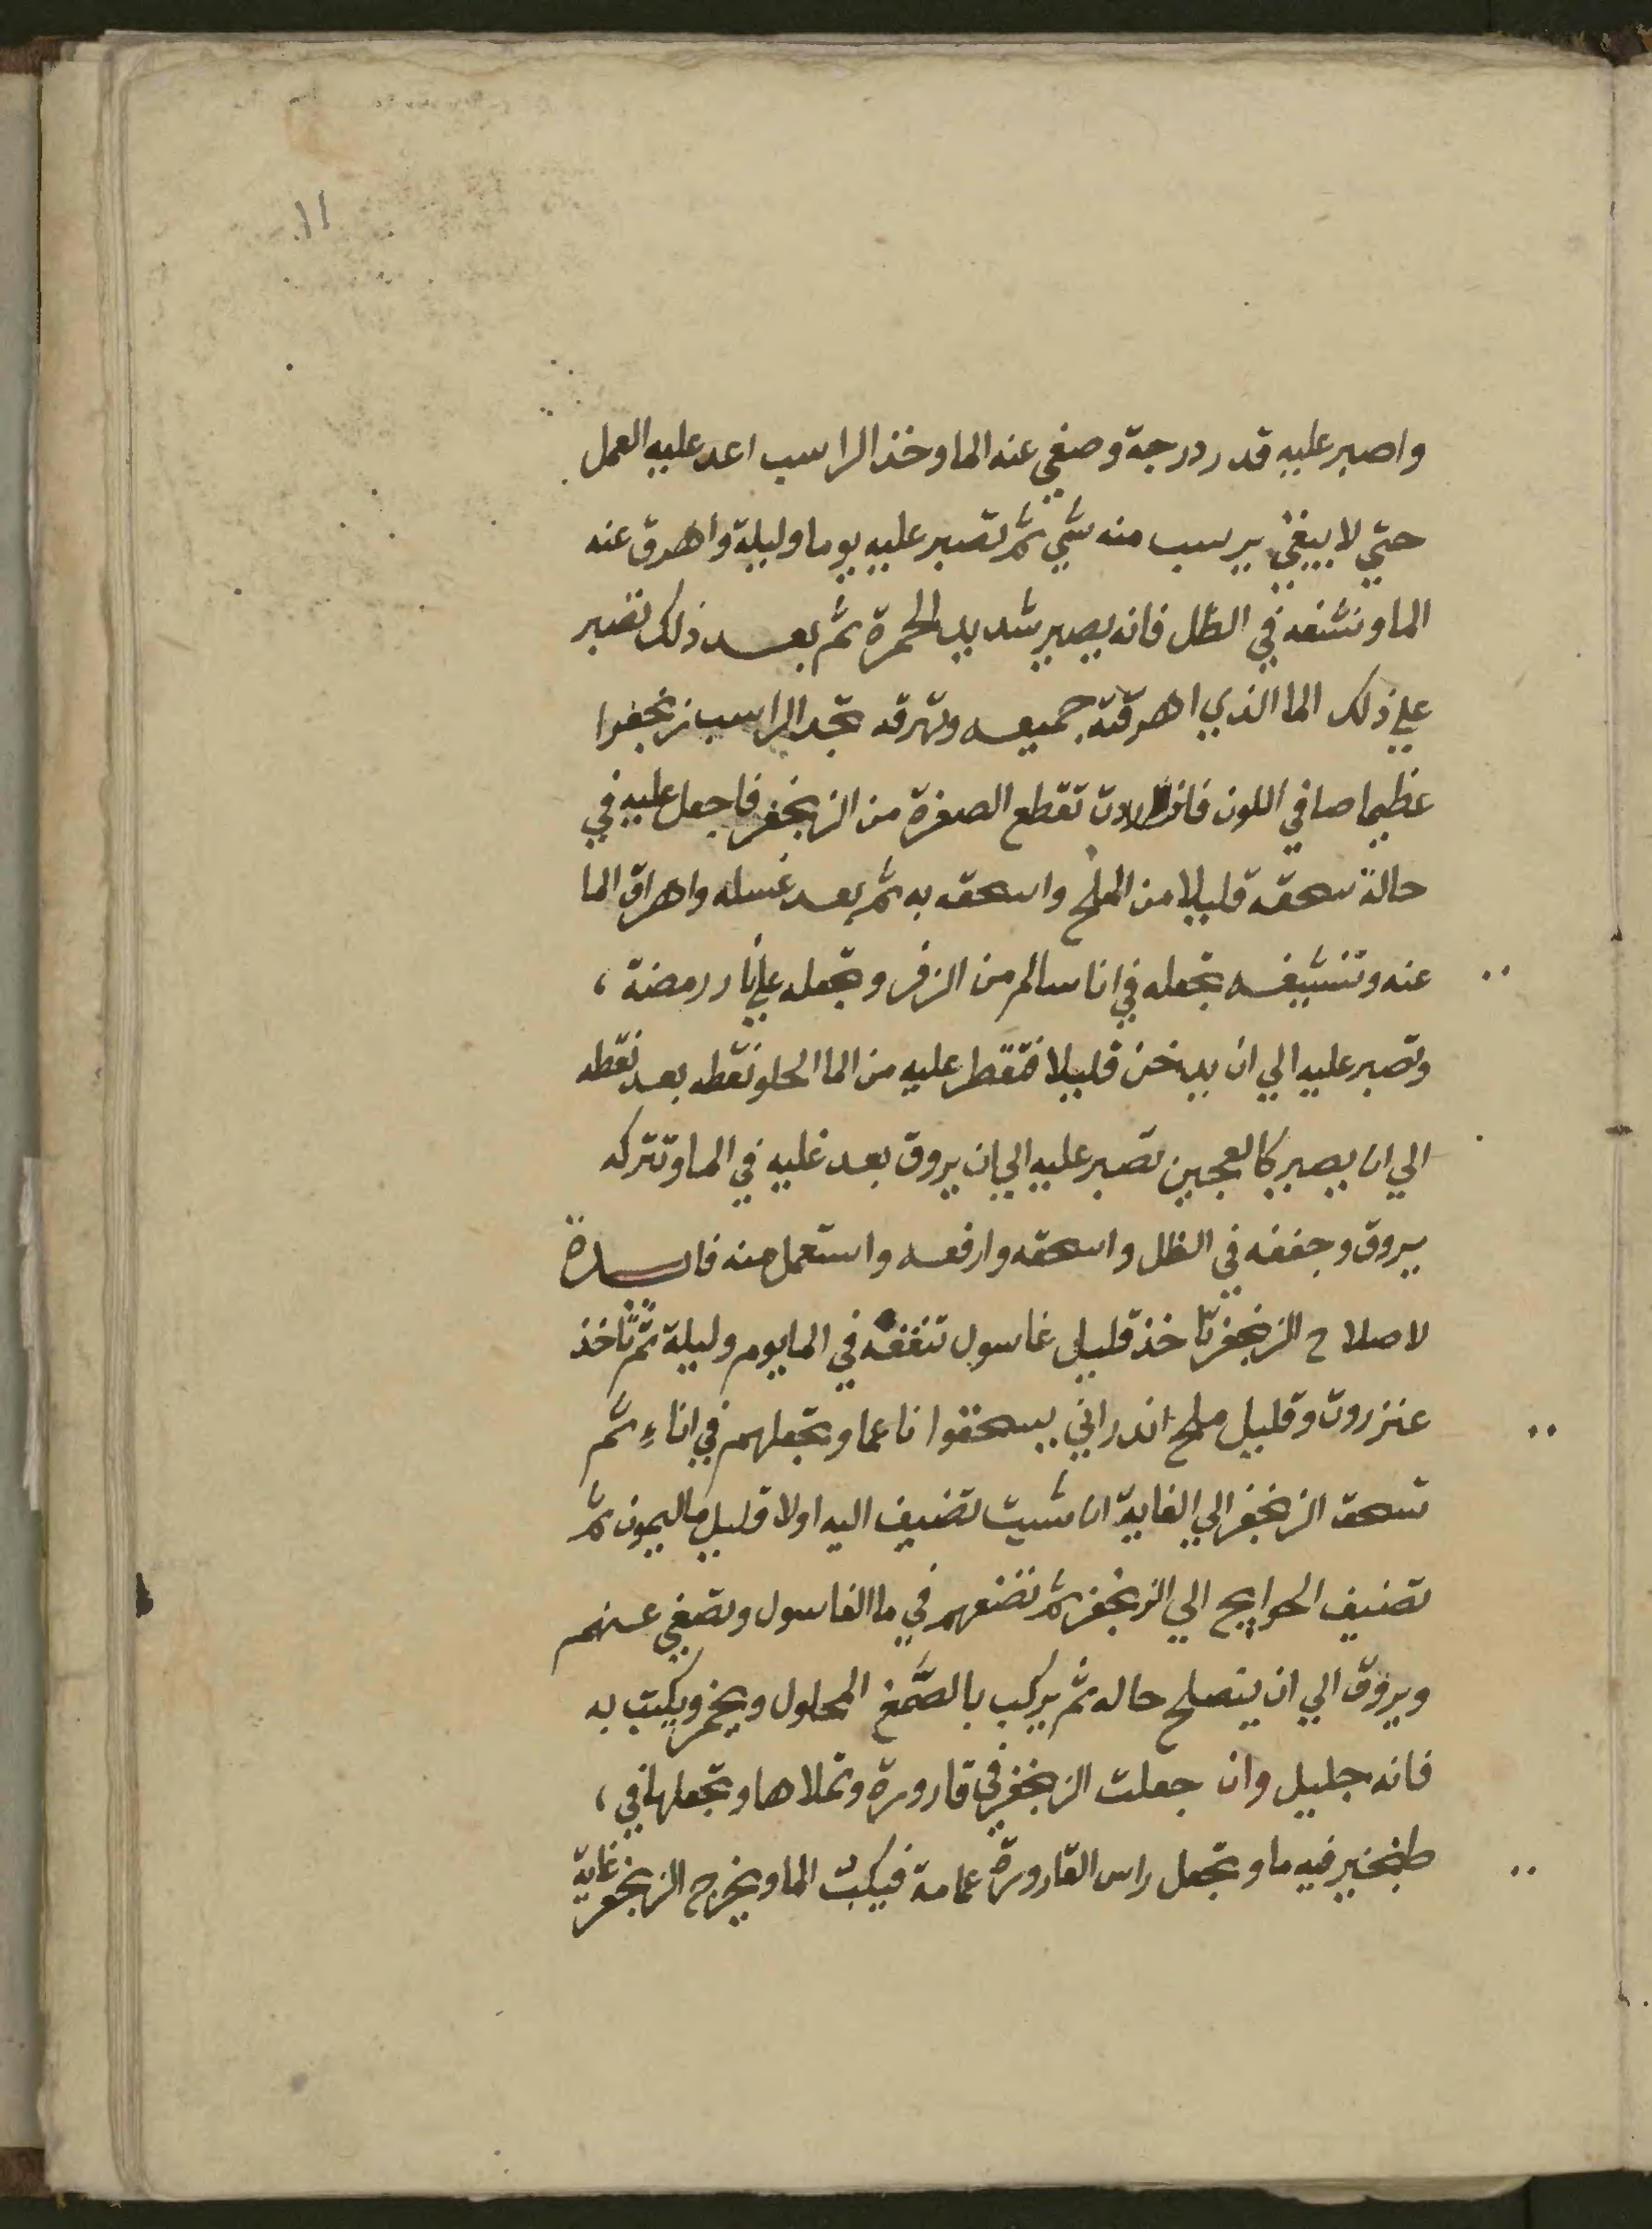 ١١
واصبر عليه قدر درجة وصفي عنه الما وخذ الراسب اعد عليه العمل
حتي لا يبقي يرسب منه شي ثم تصبر عليه يوما وليلة واهرق عنه
الما ونشفه في الظل فانه يصير شديد الحمرة ثم بعد ذلك تصبر
علي ذلك الما الذي اهرقته جميعه وتهرقه تجد الراسب زنجفرا
عظيما صافي اللون فان اردت تقطع الصفرة من الزنجفر فاجعل عليه في
حالة سحقه قليلا من الملح واسحقه به ثم بعد غسله واهراق الما
عنه وتنشيفه تجعله في انا سالم من الزفر وتجعله علي نار رمضة ،
وتصبر عليه الي ان يدخن قليلا فتقطر عليه من الما الحلو نقطه بعد نقطه
الي ان يصير كالعجين تصبر عليه الي ان يروق بعد غليه في الما وتتركه
يروق وجففه في الظل واسحقه وارفعه واستعمل منه فايدة
لاصلاح الزنجفر تاخذ قليل غاسول تنقعه في الما يوم وليلة ثم تاخذ
عنزروت وقليل ملح اندراني يسحقوا ناعما وتجعلهم في اناء ثم
تسحق الزنجفر الي الغاية ان شيت تضيف اليه اولا قليل ما ليمون ثم
تضيف الحوايج الي الزنجفر ثم تضعهم في ما الغاسول وتصفي عنهم
ويروق الي ان ينصلح حاله ثم يركب بالصمغ المحلول ويخمر ويكتب به
فانه جليل وان جعلت الزنجفر في قارورة وتملاها وتجعلها في ،
طنجير فيه ما وتجعل راس القارورة عمامة فيكب الما ويخرج الزنجفر غاية